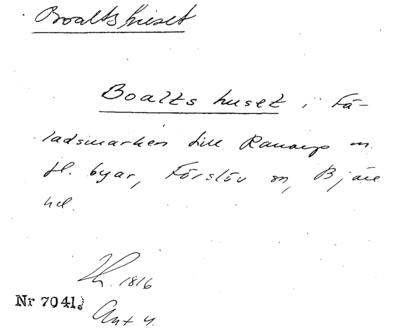 Boaltshuset
Boalts huset i Få-
ladsmarken till Ranarp m.
fl. byar, Förslöv sn, Bjäre
hd.
1816
Nr 7041.